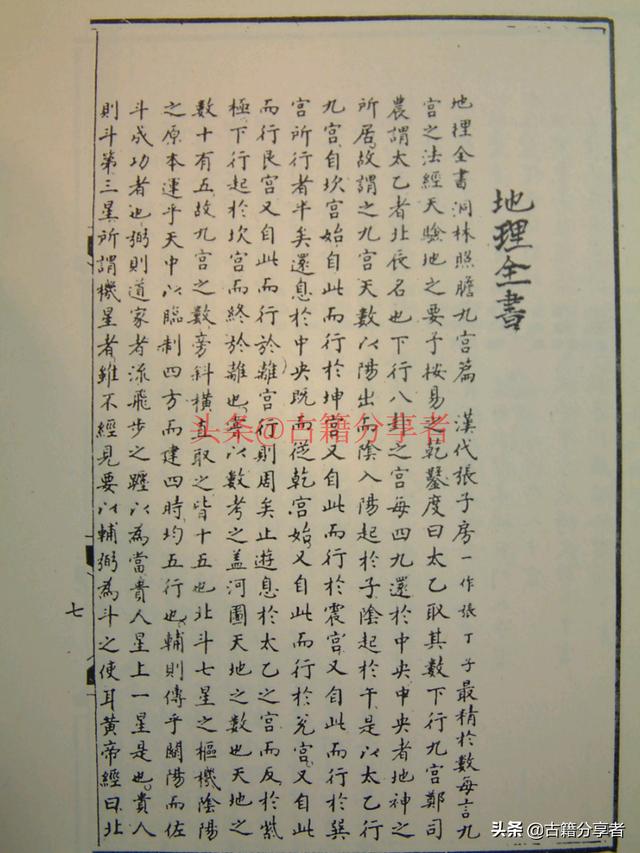 地理全書
地理全書洞林照膽九宮篇 漢代張子房一作張丁子最精於數每言九
宮之法經天驗地之要予按易之乾鑿度曰太乙取其數下行九宮鄭司
農謂太乙者北辰名也下行八卦之宮每四九還於中央中央者地神之
所居故謂之九宮天數以陽出而陰入陽起於子陰起於午是以太乙行
九宮自坎宮始自此而行於坤宮又自此而行於震宮又自此而行於巽
宮所行者半矣還息於中央既而從乾宮始又自此而行於兌宮又自此
而行艮宮又自此而行於離宮行則周矣止遊息於太乙之宮而反於紫
極下行起於坎宮而終於離也以數考之蓋河圖天地之數也天地之
數十有五故九宮之數旁斜橫直取之皆十五也北斗七星之樞機陰陽
之原本運乎天中以臨制四方而建四時均五行也輔則傳乎闓陽而佐
斗成功者也弼則道家者流飛步之躔以為當貴人星上一星是也貴人
則斗第三星所謂機星者雖不經見要以輔弼為斗之使耳黃帝經曰北
七
头条@古籍分享者
头条 @古籍分享者